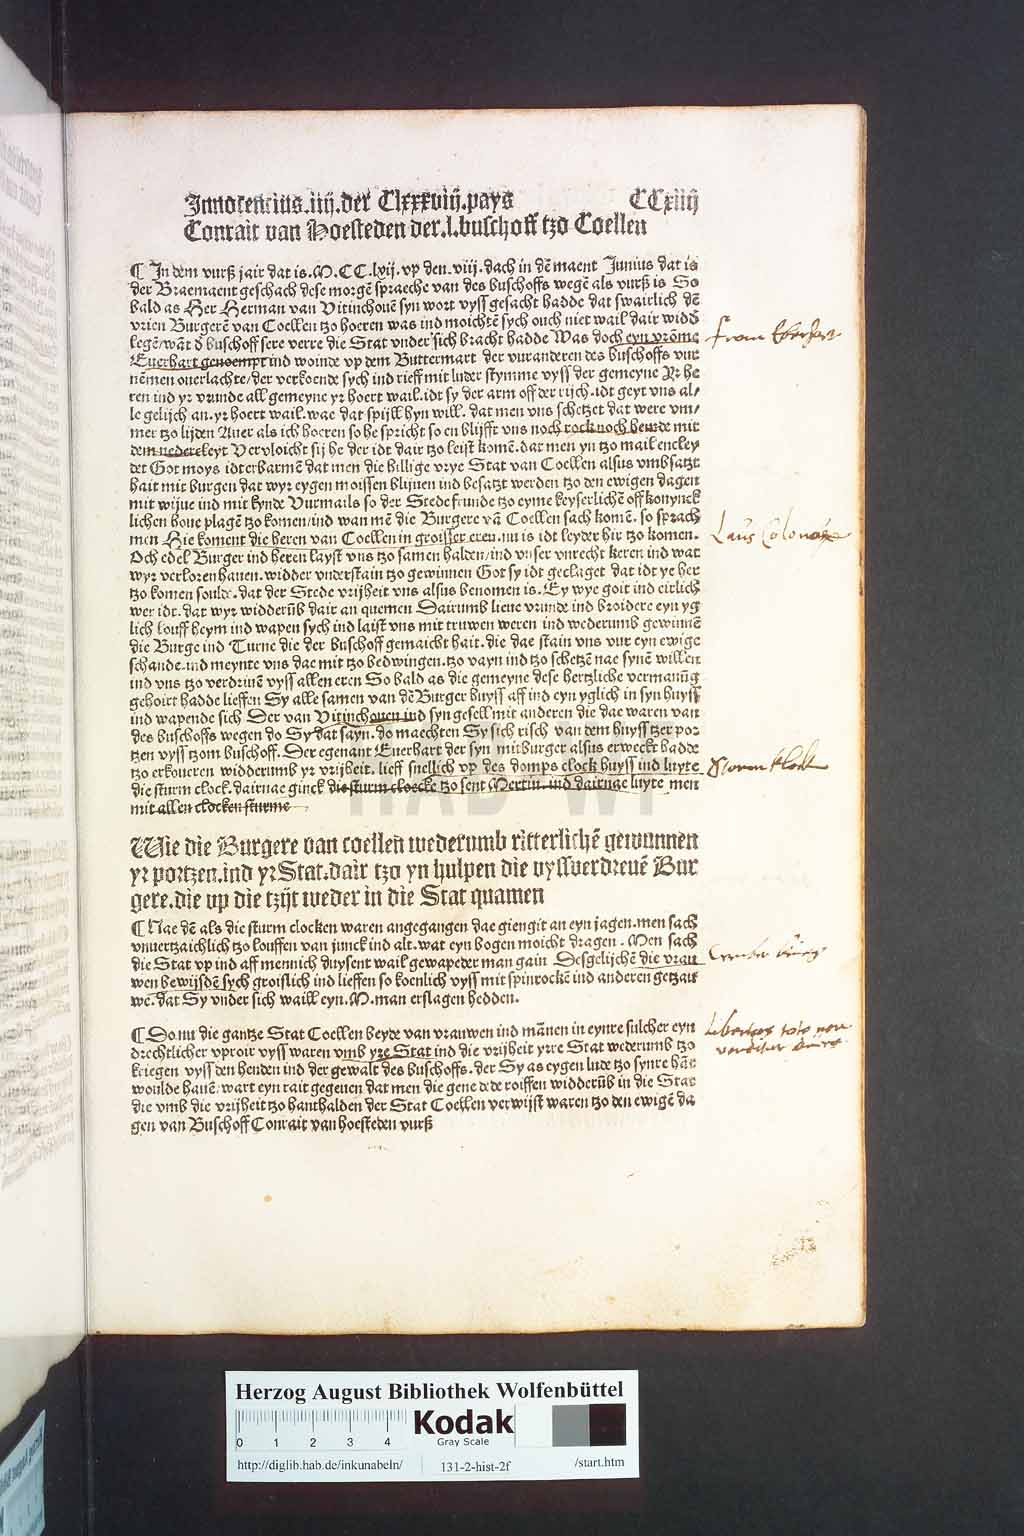 Innocencius.iiij.der Clxxxviij.pays CCxiiij
Conrait van Hoesteden der.l.buschoff tzo Coellen
¶ In dem vurß jair dat is.M.CC.lxij.vp den.viij.dach in dē maent Junius dat is
der Braemaent geschach dese morgē spraeche van des buschoffs wegē als vurß is So
bald as Her Herman van Vitinchouē syn wort vyss gesacht hadde dat swairlich dē
vrien Burgerē van Coellen tzo hoeren was ind moichtē sych ouch niet wail dair widd
legē/wāt d buschoff sere verre die Stat vnder sich bracht hadde Was doch eyn vrōme
Euerhart genoempt ind woinde vp dem Buttermart der vuranderen des buschoffs vur
nēmen ouerlachte/der verkoende sych ind rieff mit luder stymme vyss der gemeyne Yr he
ren ind yr vrunde all gemeyne yr hoert wail.idt sy der arm off der rijch.idt geyt vns al/
le gelijch an.yr hoert wail.wae dat spijll hyn will.dat men vns schetzet dat were vm/
mer tzo lijden Auer als ich hoeren so he spricht so en blijfft vns noch rock noch heufde mit
dem nedercleyt Vervloicht sij he der idt dair tzo leist komē.dat men yn tzo mail encley
det Got moys idt erbarmē dat men die hillige vrye Stat van Coellen alsus vmbsatzt
hait mit burgen dat wyr eygen moissen blijuen ind besatzt werden tzo den ewigen dagen
mit wijue ind mit kynde Vurmails so der Stede frunde tzo eyme keyserlichē off konynck
lichen houe plagē tzo komen/ind wan mē die Burgere vā Coellen sach komē.so sprach
men Hie koment die heren van Coellen in groisser eren.nu is idt leyder hir tzo komen.
Och edel Burger ind heren layst vns tzo samen halden/ind vnser vnrecht keren ind wat
wyr verloren hauen.widder vnderstain tzo gewinnen Got sy idt geclaget dat idt ye her
tzo komen soulde.dat der Stede vrijheit vns alsus benomen is.Ey wye goit ind eirlich
wer idt.dat wyr widderūb dair an quemen Dairumb lieue vrunde ind broidere eyn yg
lich louff heym ind wapen sych ind laist vns mit truwen weren ind wederumb gewinnē
die Burge ind Turne die der buschoff gemaicht hait.die dae stain vns vur eyn ewige
schande.ind meynte vns dae mit tzo bedwingen.tzo vayn ind tzo schetzē nae synē willen
ind vns tzo verdriuē vyss allen eren So bald as die gemeyne dese hertzliche vermanūg
gehoirt hadde lieffen Sy alle samen van dē Burger huyss aff ind eyn yglich in syn huyss
ind wapende sich Der van Vitinchouen ind syn gesell mit anderen die dae waren van
des buschoffs wegen do Sy dat sayn.do maechten Sy sich risch van dem huyss tzer por
tzen vyss tzom buschoff.Der egenant Euerhart der syn mitburger alsus erweckt hadde
tzo erkoueren widderumb yr vrijheit.lieff snellich vp des domps clock huyss ind luyte
die sturm clock.dairnae ginck die sturm cloecke tzo sent Mertin.ind dairnae luyte men
mit allen clocken sturme
Wie die Burgere van coellen wederumb ritterlichē gewunnen
yr portzen.ind yr Stat.dair tzo yn hulpen die vyssverdreuē Bur
gere.die vp die tzijt weder in die Stat quamen
¶ Nae dē als die sturm clocken waren angegangen dae giengit an eyn jagen.men sach
vnuertzaichlich tzo louffen van junck ind alt.wat eyn bogen moicht dragen.Men sach
die Stat vp ind aff mennich duysent wail gewapeder man gain Desgelijchē die vrau
wen bewijsdē sych groistlich ind lieffen so koenlich vyss mit spinrockē ind anderen getzau
wē.dat Sy vnder sich waill eyn.M.man erslagen hedden.
¶ Do.nu die gantze Stat Coellen beyde van vrauwen ind mānen in eynre sulcher eyn
drechtlicher vproir vyss waren vmb yre Stat ind die vrijheit yrre Stat wederumb tzo
kriegen vyss den henden ind der gewalt des buschoffs.der Sy as eygen lude tzo synre hāt
woulde hauē.wart eyn rait gegeuen dat men die gene dede roiffen widderūb in die Stat
die vmb die vrijheit tzo hanthalden der Stat Coellen verwijst waren tzo den ewigē da
gen van Buschoff Conrait van hoesteden vurß
Laus Coloniae
Storm klock
Libertas toto non
venditur auro
HAB WF
Herzog August Bibliothek Wolfenbüttel
0 1 2 3 4
Kodak
Gray Scale
http://diglib.hab.de/inkunabeln/ 131-2-hist-2f /start.htm